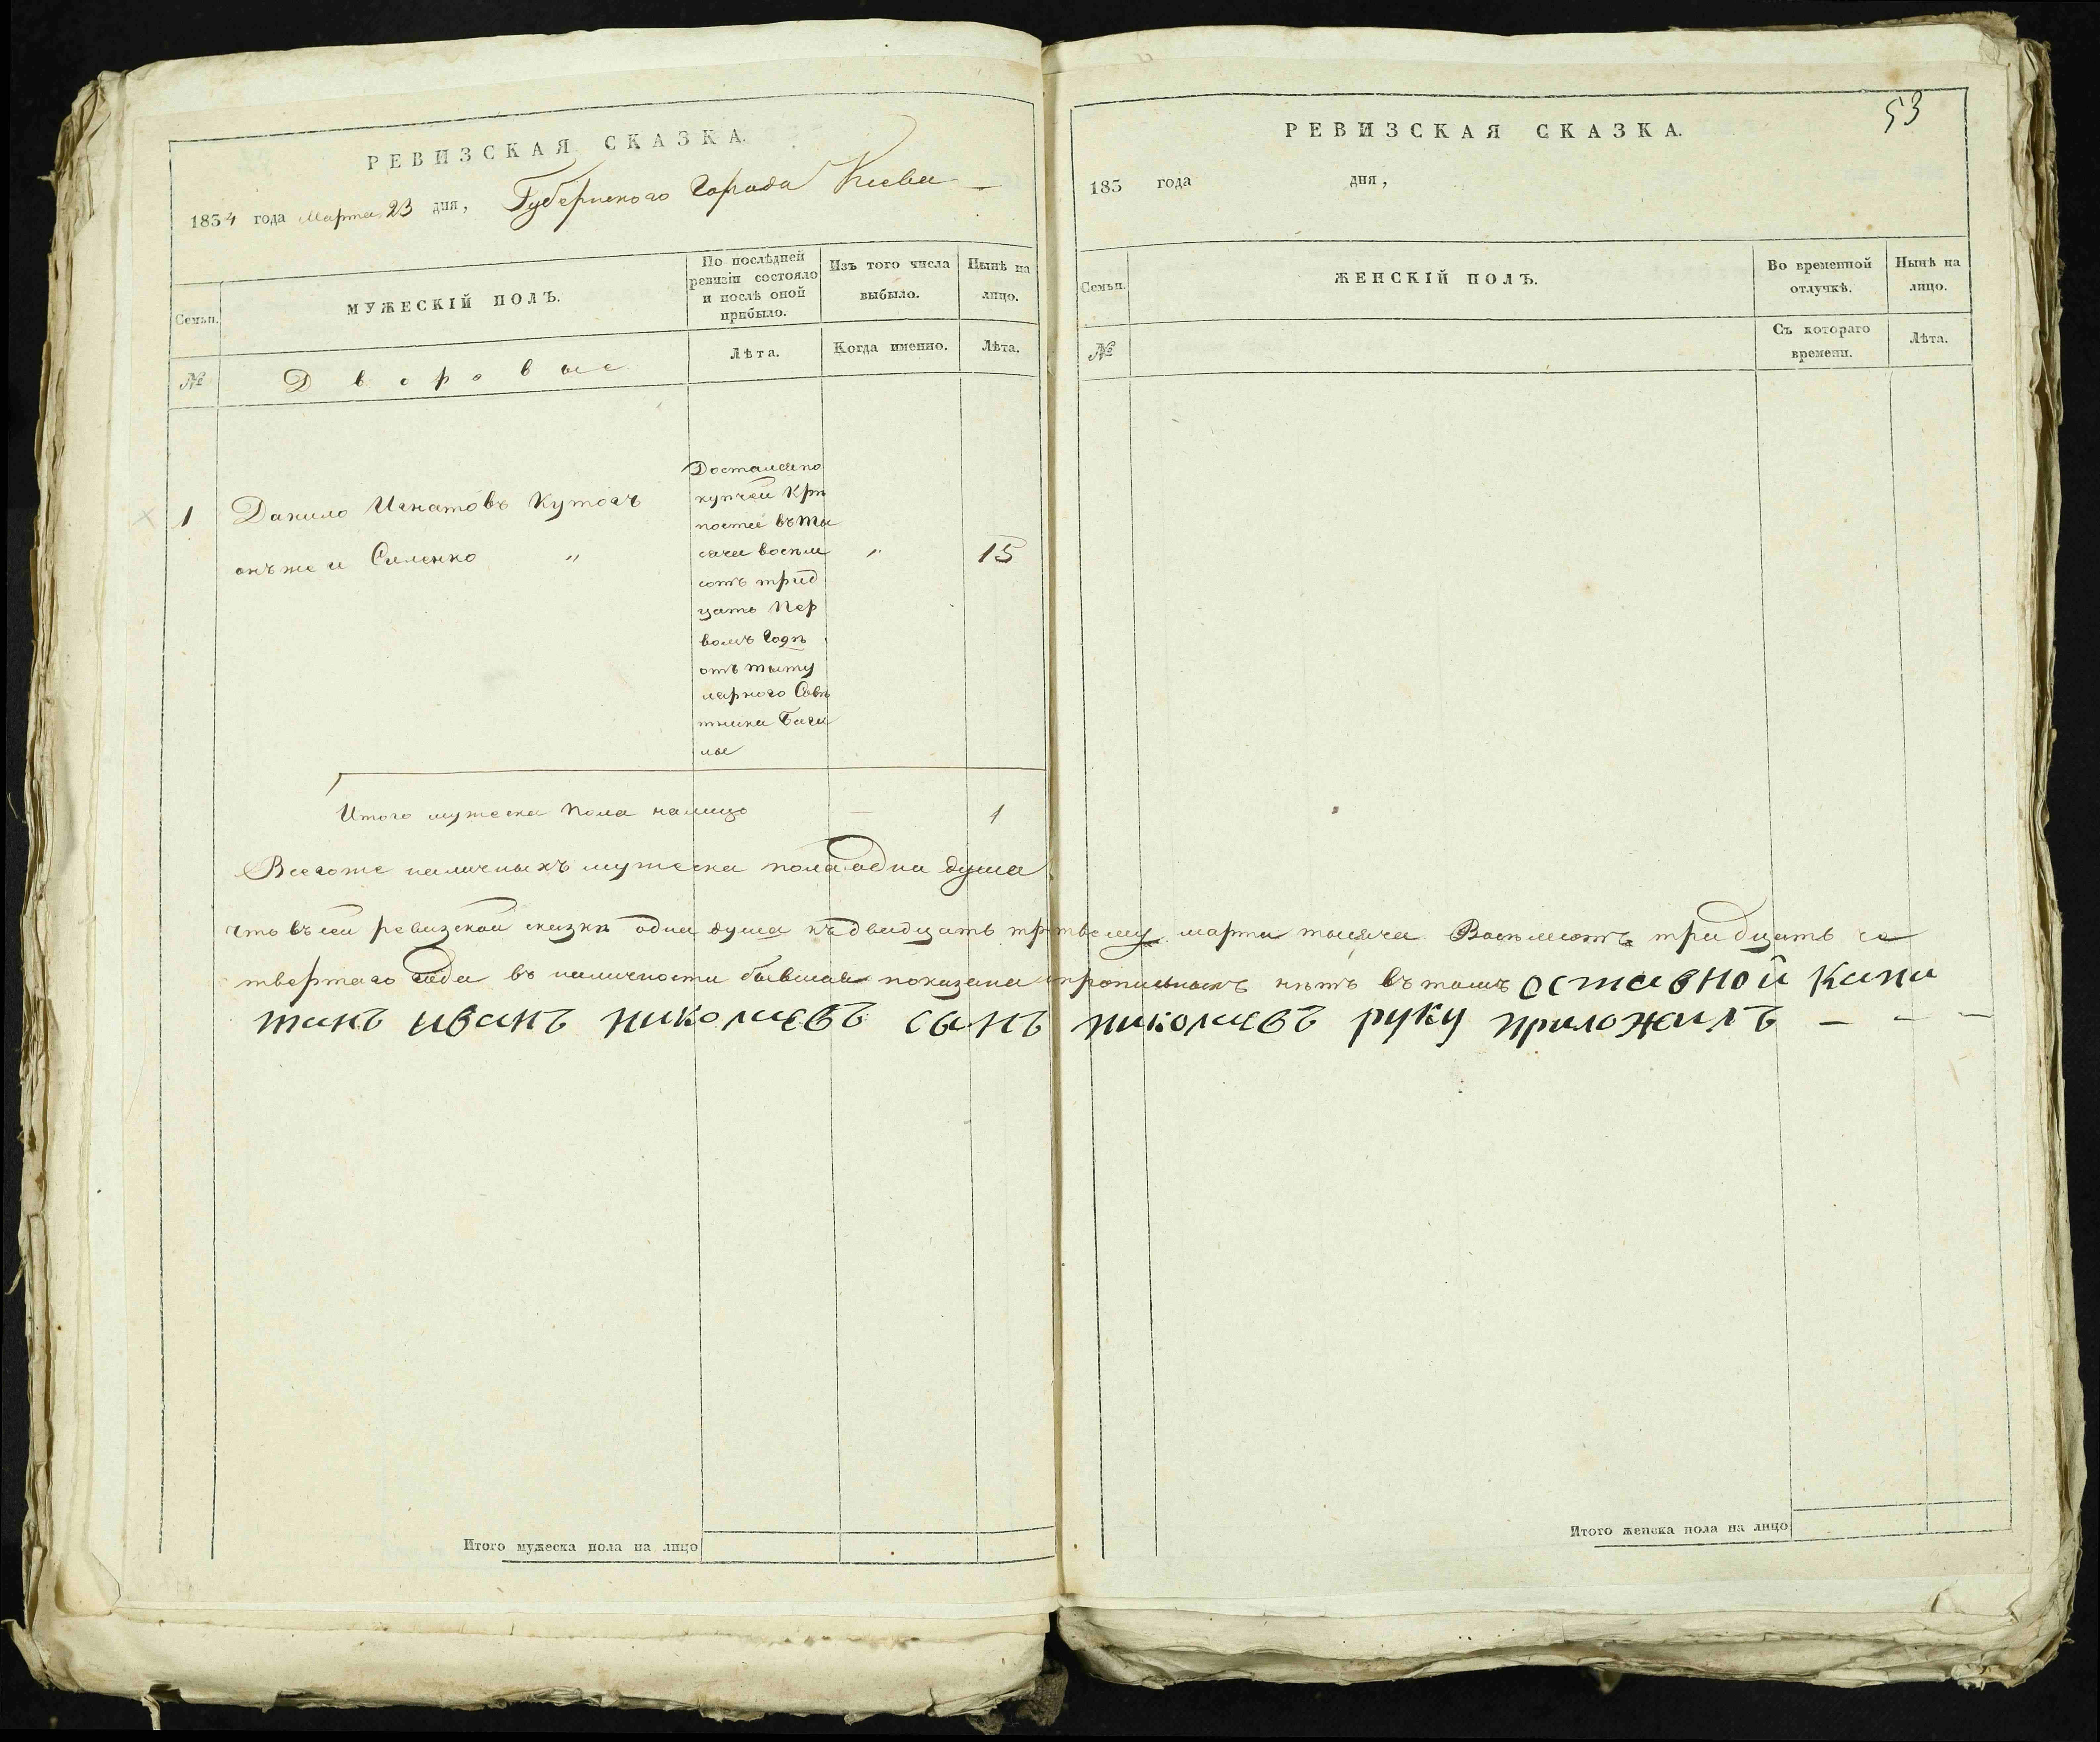 РЕВИЗСКАЯ СКАЗКА.
1834 года Марта 23 дня, Губернского Города Киева
Семьи.
МУЖЕСКІЙ ПОЛЪ.
По послѣдней
ревизіи состояло
и послѣ оной
прибыло.
Изъ того числа
выбыло.
Нынѣ на
лицо.
№
Дворовые
Лѣта.
Когда именно.
Лѣта.
1
Данило Игнатовъ
онъ же и Силенко "
Достался по
купчей крѣ
пости въ ты
сяча восем
сотъ трид
цать пер
вомъ годѣ
отъ титу
лярного Совѣ
тника
"
15
Итого мужеска пола налицо — 1
Всегоже наличныхъ мужеска пола одна душа
что въ сей ревизской сказкѣ одна душа къ двадцать третьему марта тысяча Восемьсотъ тридцать че
твертаго года въ наличности бывшая показана прописныхъ нѣтъ въ томъ оставной капи
танъ иванъ николаевъ сынъ николаевъ руку приложилъ — — —
Итого мужеска пола на лицо
53
РЕВИЗСКАЯ СКАЗКА.
183 года дня,
Семьи.
ЖЕНСКІЙ ПОЛЪ.
Во временной
отлучкѣ.
Нынѣ на
лицо.
№
Съ котораго
времени.
Лѣта.
Итого женска пола на лицо